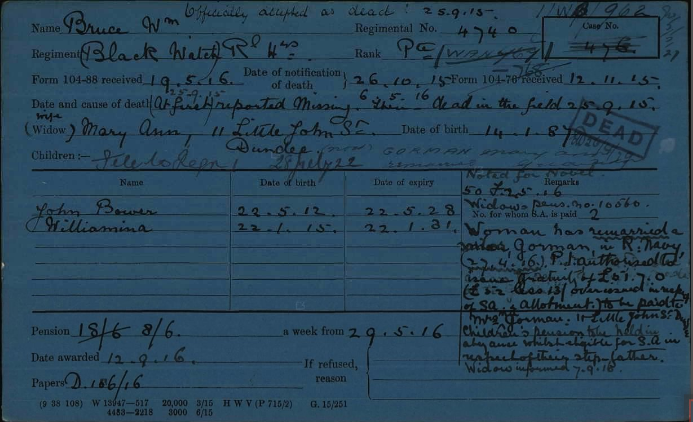 Officially accepted as dead: 25.9.15.
Name Bruce Wm Regimental No. 4740 Case No.
Regiment (Black Watch) Rl Hrs Rank Pte
Form 104-88 received 19.5.16. Date of notification of death } 26.10.15 Form 104-76 received 12.11.15.
25.9.15 6.5.16
Date and cause of death (At first) reported Missing. Then dead in the field 25.9.15.
wife
(Widow) Mary Ann, 11 Little John St. Date of birth 14.1.87
Dundee
DEAD
Children:—
28 July 22
Name Date of birth Date of expiry Remarks
Noted for Novel.
50 F.25.16
Widows Pens. No. 10560.
No. for whom S.A. is paid 2
John Bower 22.5.12. 22.5.28
Williamina 22.1.15. 22.1.31.
Woman has remarried a
Gorman, in R. Navy
(27.4.16.) P.I. authorised to
gratuity of £51.7.0
(£52 less 13/ overissued in resp
of S.A. & Allotment. To be paid to
Mrs Gorman. 11 Little John St
Children's pension to be held in
abeyance whilst eligible for S.A in
respect of their step-father.
Widow informed 7.9.16.
Pension 18/6 8/6 a week from 29.5.16
Date awarded 12.9.16.
If refused, reason
Papers D.186/16
(9 38 108) W 13947—517 20,000 3/15 H W V (P 715/2) G. 15/251
4483—2218 3000 6/15